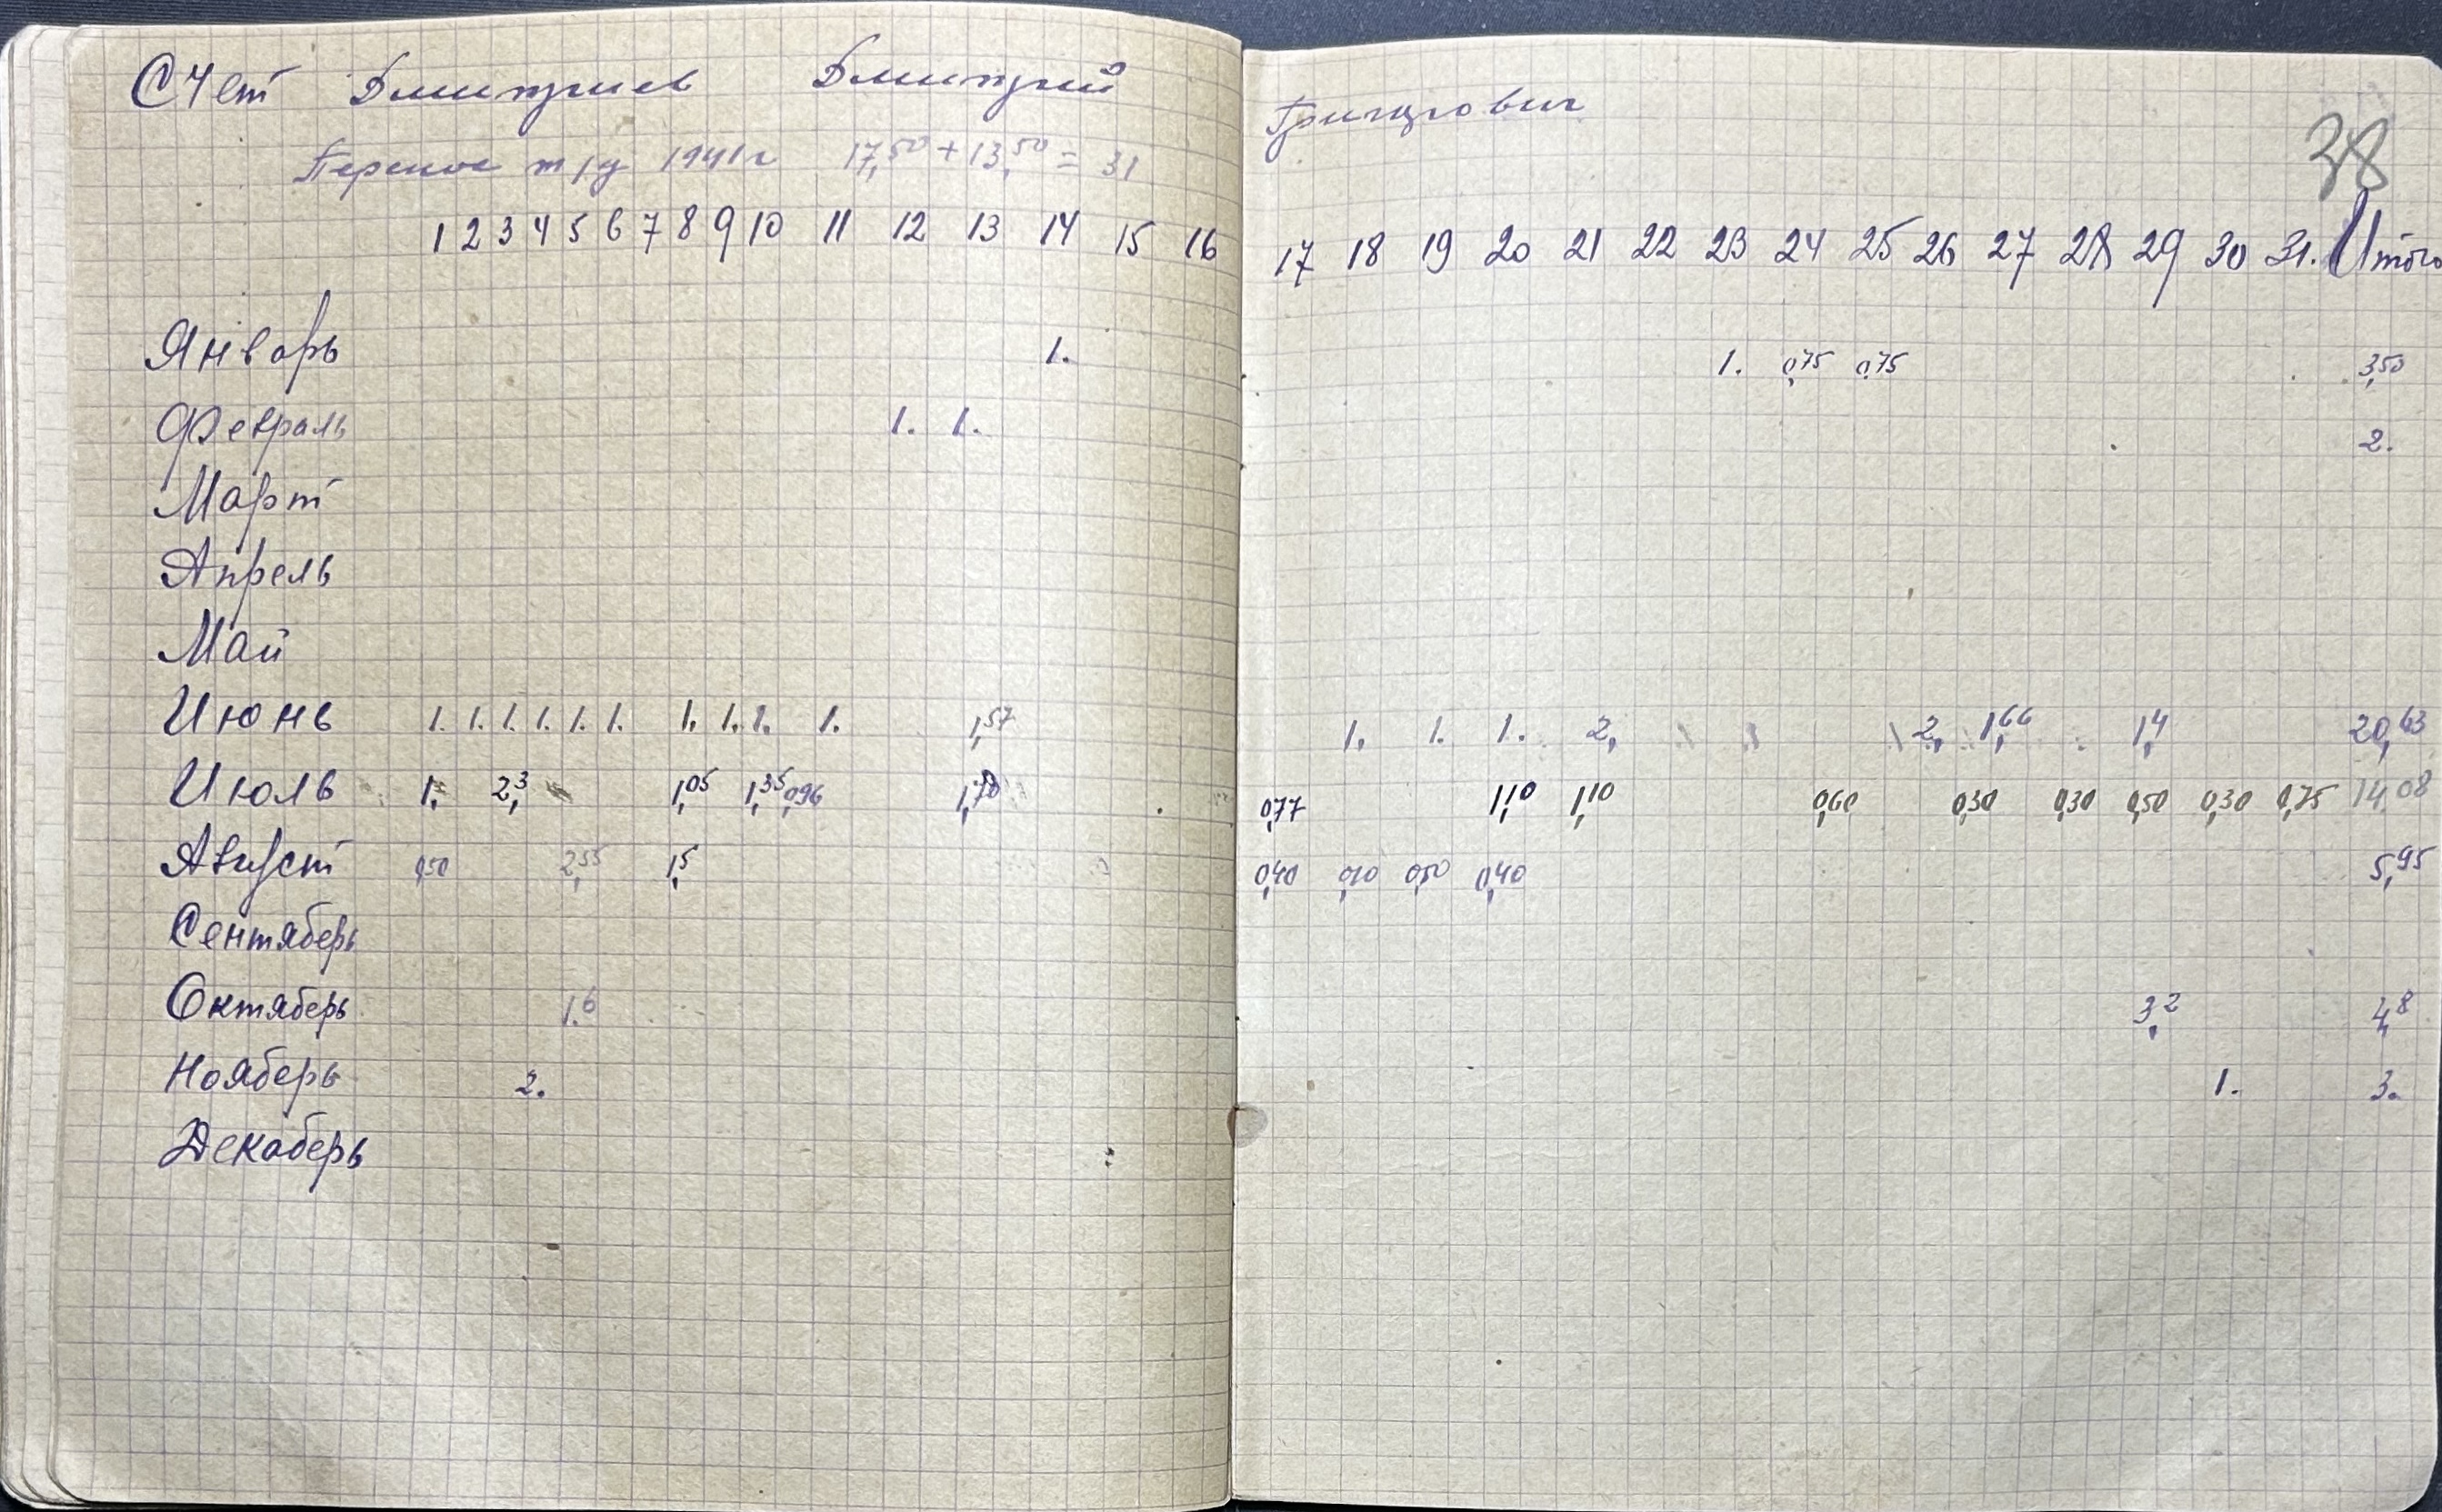 Счет Дмитриев Дмитрий Григорович
38
Перенос т/д 1941 г 17,50 + 13,50 = 31
1 2 3 4 5 6 7 8 9 10 11 12 13 14 15 16 17 18 19 20 21 22 23 24 25 26 27 28 29 30 31. Итого
Январь 1. 1. 0,75 0,75 3,50
Февраль 1. 1. 2.
Март
Апрель
Май
Июнь 1. 1. 1. 1. 1. 1. 1. 1. 1. 1. 1,57 1. 1. 1. 2, 2, 1,66 1,4 20,63
Июль 1, 2,3 1,05 1,35 0,96 1,70 0,77 1,10 1,10 0,60 0,30 0,30 0,50 0,30 0,75 14,08
Август 0,50 2,55 1,5 0,40 0,10 0,50 0,40 5,95
Сентяберь
Октяберь 1.6 3,2 4,8
Нояберь 2. 1. 3.
Декаберь